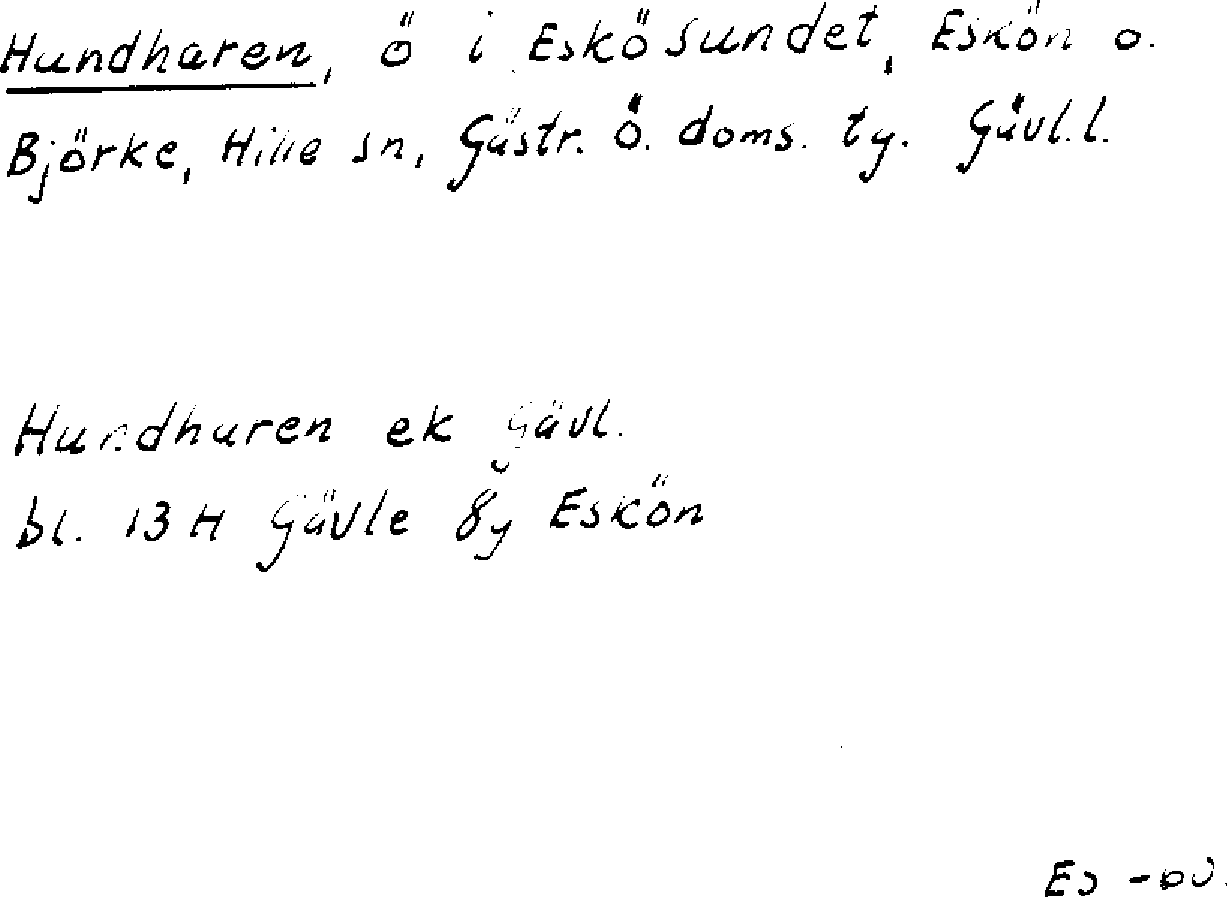 Hundharen, ö i Eskösundet, Eskön o.
Björke, Hille sn, Gästr. Ö. doms. ty. Gävl.l.
Hundharen ek Gävl.
bl. 13 H Gävle 8y Eskön